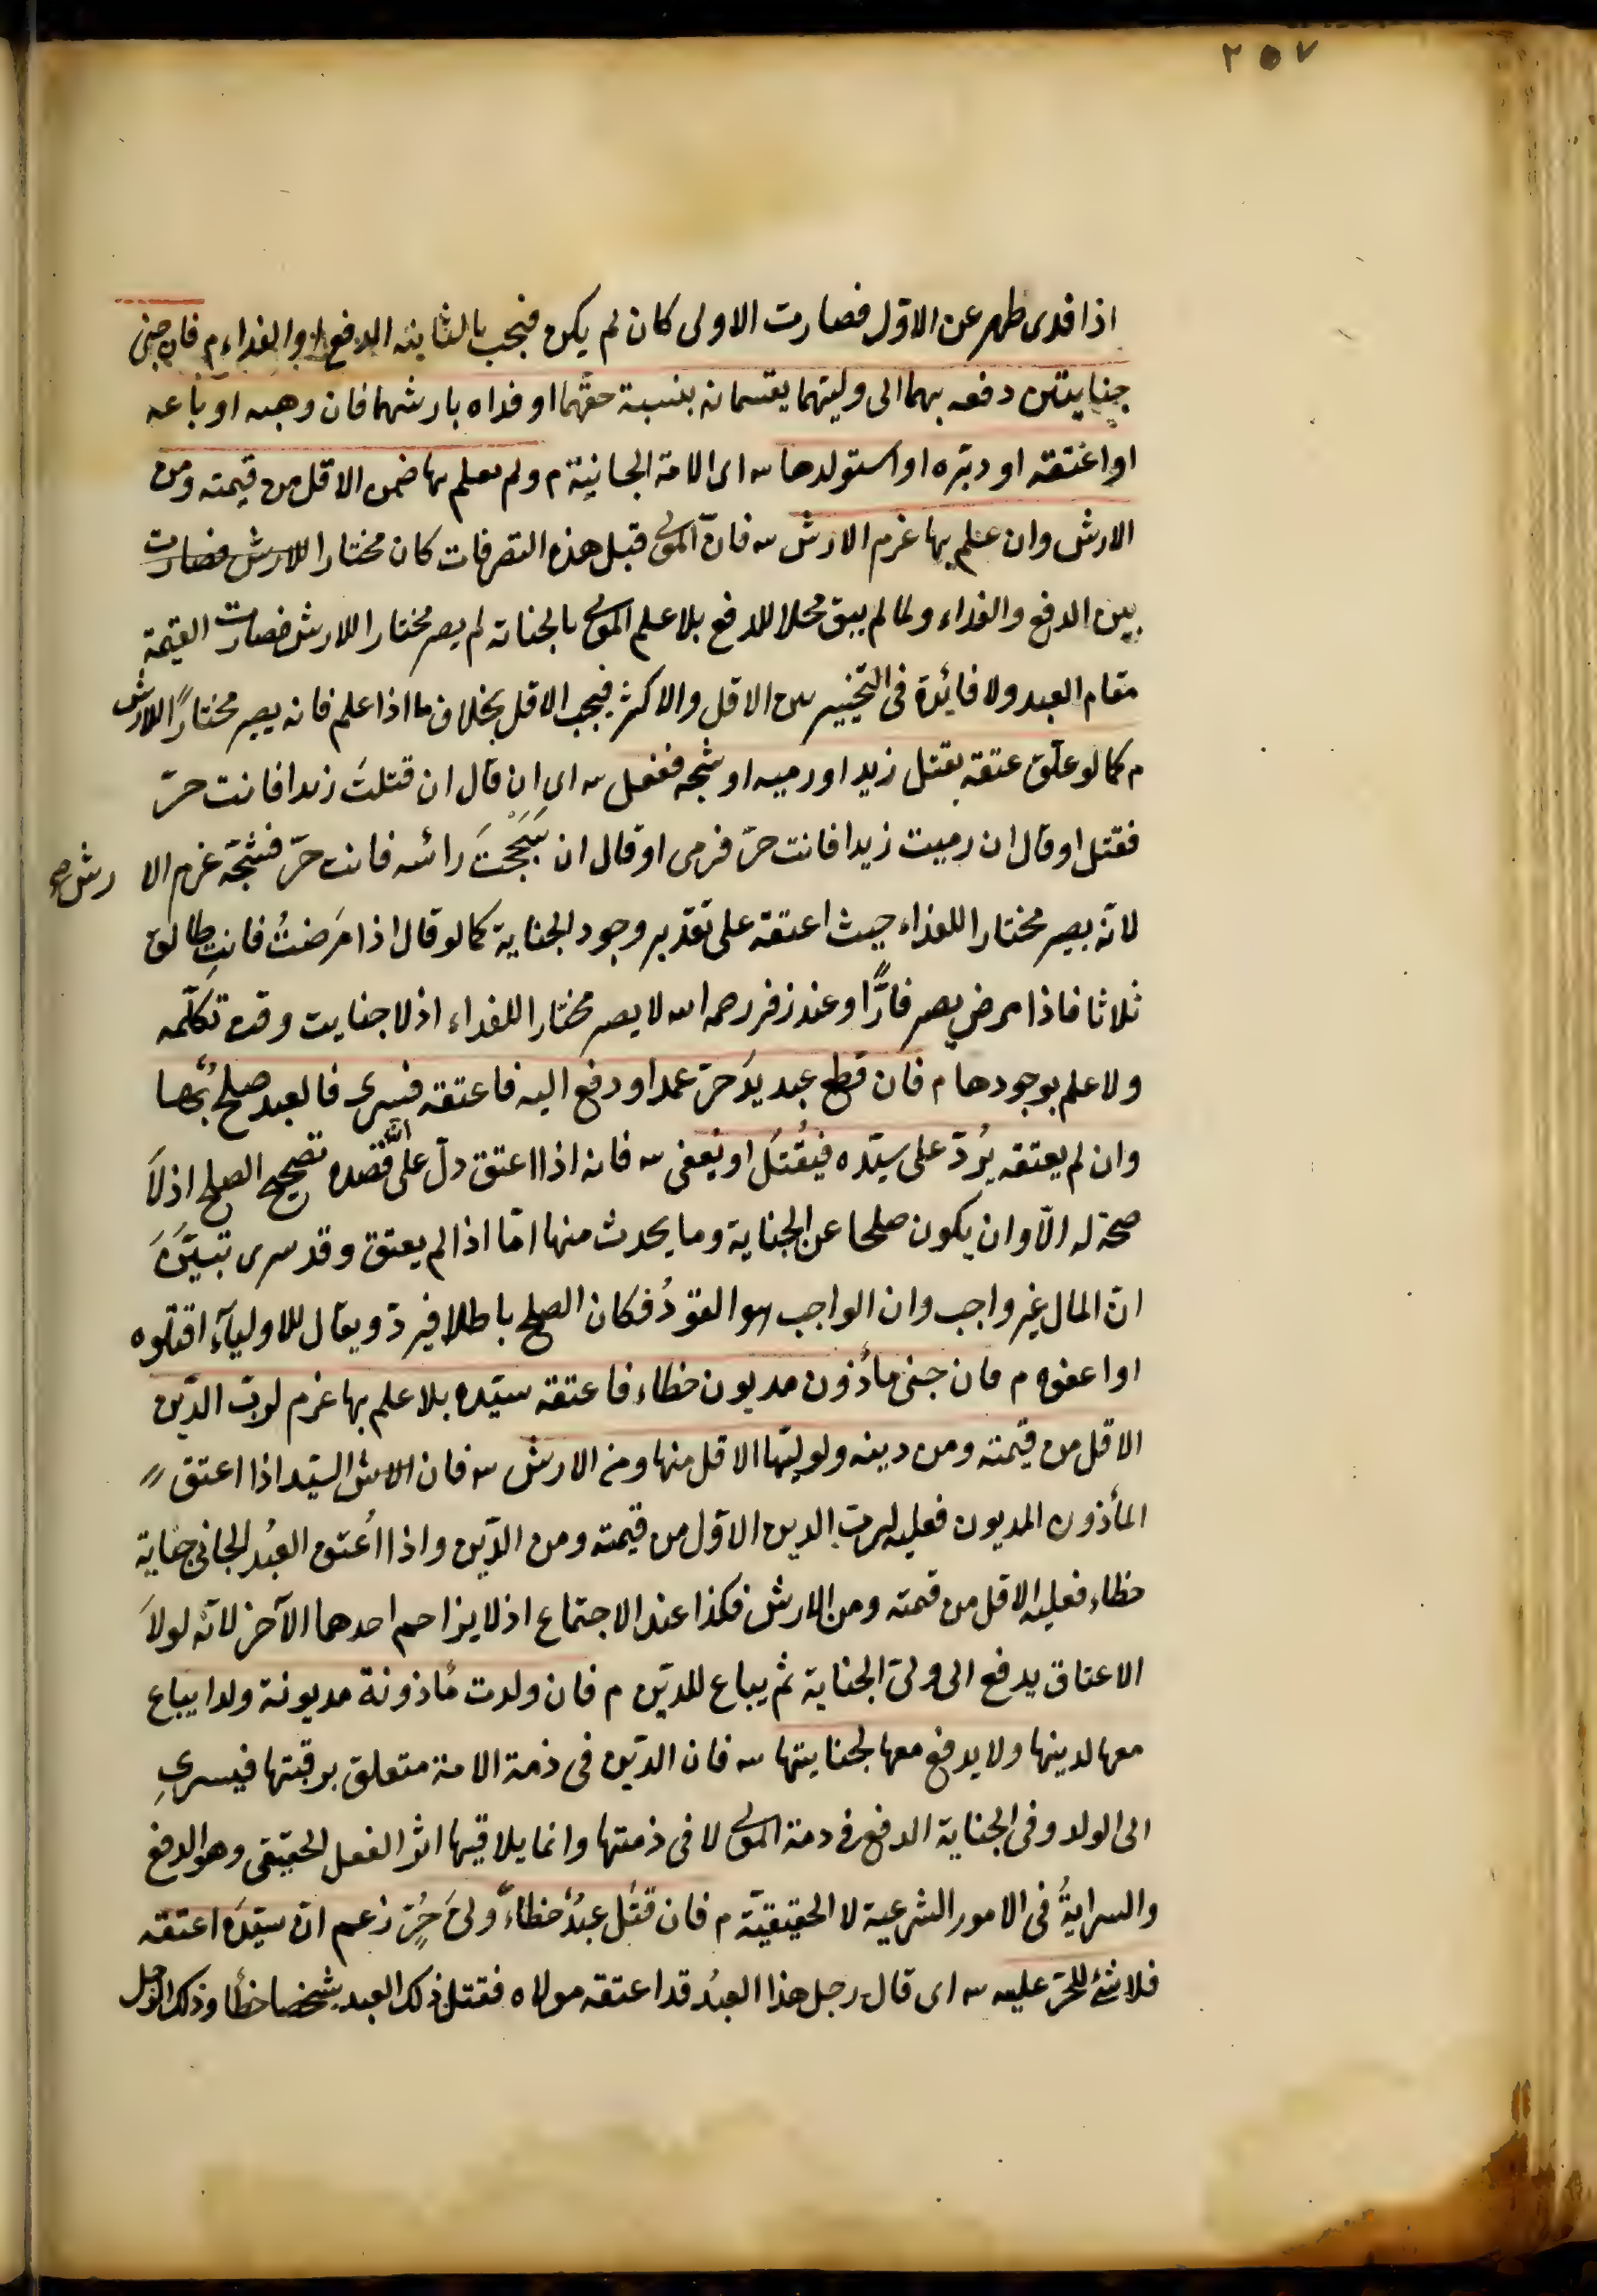 ٢٥٧
اذا فدى طهر عن الاوّل فصارت الاولى كان لم يكن فيجب بالثانية الدفع او الفداء م فان جنى
جنايتين دفعه بهما الى وليتهما يقتسمانه بنسبة حقهما او فداه بارشهما فان وهبه او باعه
او اعتقه او دبّره او استولدها س اى الامة الجانية م ولم يعلم بها ضمن الاقل من قيمته ومن
الارش وان علم بها غرم الارش س فانّ المولى قبل هذه التصرفات كان مختارا للارش فصارت
بين الدفع والفداء ولما لم يبق محلا للدفع بلا علم المولى بالجناية لم يصر مختارا للارش فصارت القيمة
مقام العبد ولا فائدة فى التخيير بين الاقل والاكثر فيجب الاقل بخلاف ما اذا علم فانه يصير مختارًا للارش
م كما لو علّق عتقه بقتل زيد او رميه او شجه ففعل س اى ان قال ان قتلتَ زيدا فانت حرّ
فقتل او قال ان رميت زيدا فانت حرّ فرمى او قال ان شَجَجْتَ رأسه فانت حرّ فشجّه غرم الا رش صح
لانّه يصير مختارا للفداء حيث اعتقه على تقدير وجود الجناية كما لو قال اذا مَرضتُ فانتِ طالق
ثلاثا فاذا مرض يصير فارًّا وعند زفر رحمه الله لا يصير مختارا للفداء اذ لا جناية وقت تكلّمه
ولا علم بوجودها م فان قطع عبد يدَ حرّ عمدا ودفع اليه فاعتقه فسرى فالعبد صلح بها
وان لم يعتقه يُردّ على سيّده فيُقتَل او يُعفى س فانه اذا اعتق دلّ على انّ قصده تصحيح الصلح اذ لا
صحة له الّا وان يكون صلحا عن الجناية وما يحدث منها امّا اذا لم يعتق وقد سرى تبيّن
انّ المال غير واجب وان الواجب هو القودُ فكان الصلح باطلا فيردّ ويقال للاولياء اقتلوه
او اعفوه م فان جنى مأذون مديون خطاء فاعتقه سيّده بلا علم بها غرم لربّ الدّين
الاقل من قيمته ومن دينه ولوليّها الاقل منها ومن الارش س فان السيّد اذا اعتق
المأذون المديون فعليه لرب الدين الاقل من قيمته ومن الدّين واذا اُعتق العبُد الجانى جناية
خطاء فعليه الاقل من قيمته ومن الارش فكذا عند الاجتماع اذ لا يزاحم احدهما الآخر لانّه لولا
الاعتاق يدفع الى ولىّ الجناية ثم يباع للدّين م فان ولدت مأذونة مديونة ولدا يباع
معها لدينها ولا يدفع معها لجنايتها س فان الدّين فى ذمة الامة متعلق برقبتها فيسرى
الى الولد وفى الجناية الدفع فى ذمة المولى لا فى ذمتها وانما يلاقيها اثر الفعل الحقيقى وهو الدفع
والسرايةُ فى الامور الشرعية لا الحقيقيّة م فان قتَل عبدٌ خطاءً ولىَّ حُرٍّ زعم انّ سيّدَه اعتقه
فلا شئ للحرّ عليه س اى قال رجل هذا العبدُ قد اعتقه مولاه فقتل ذلك العبد شخصا خطأ وذلك الرجل